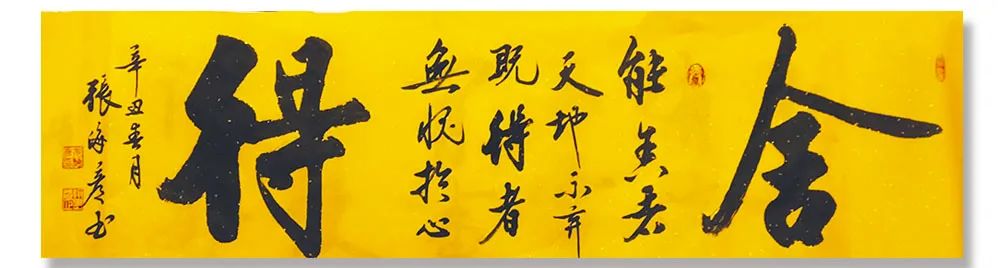 舍
能舍者
天地不弃
既得者
無愧於心
得
辛丑春月
張海彦书